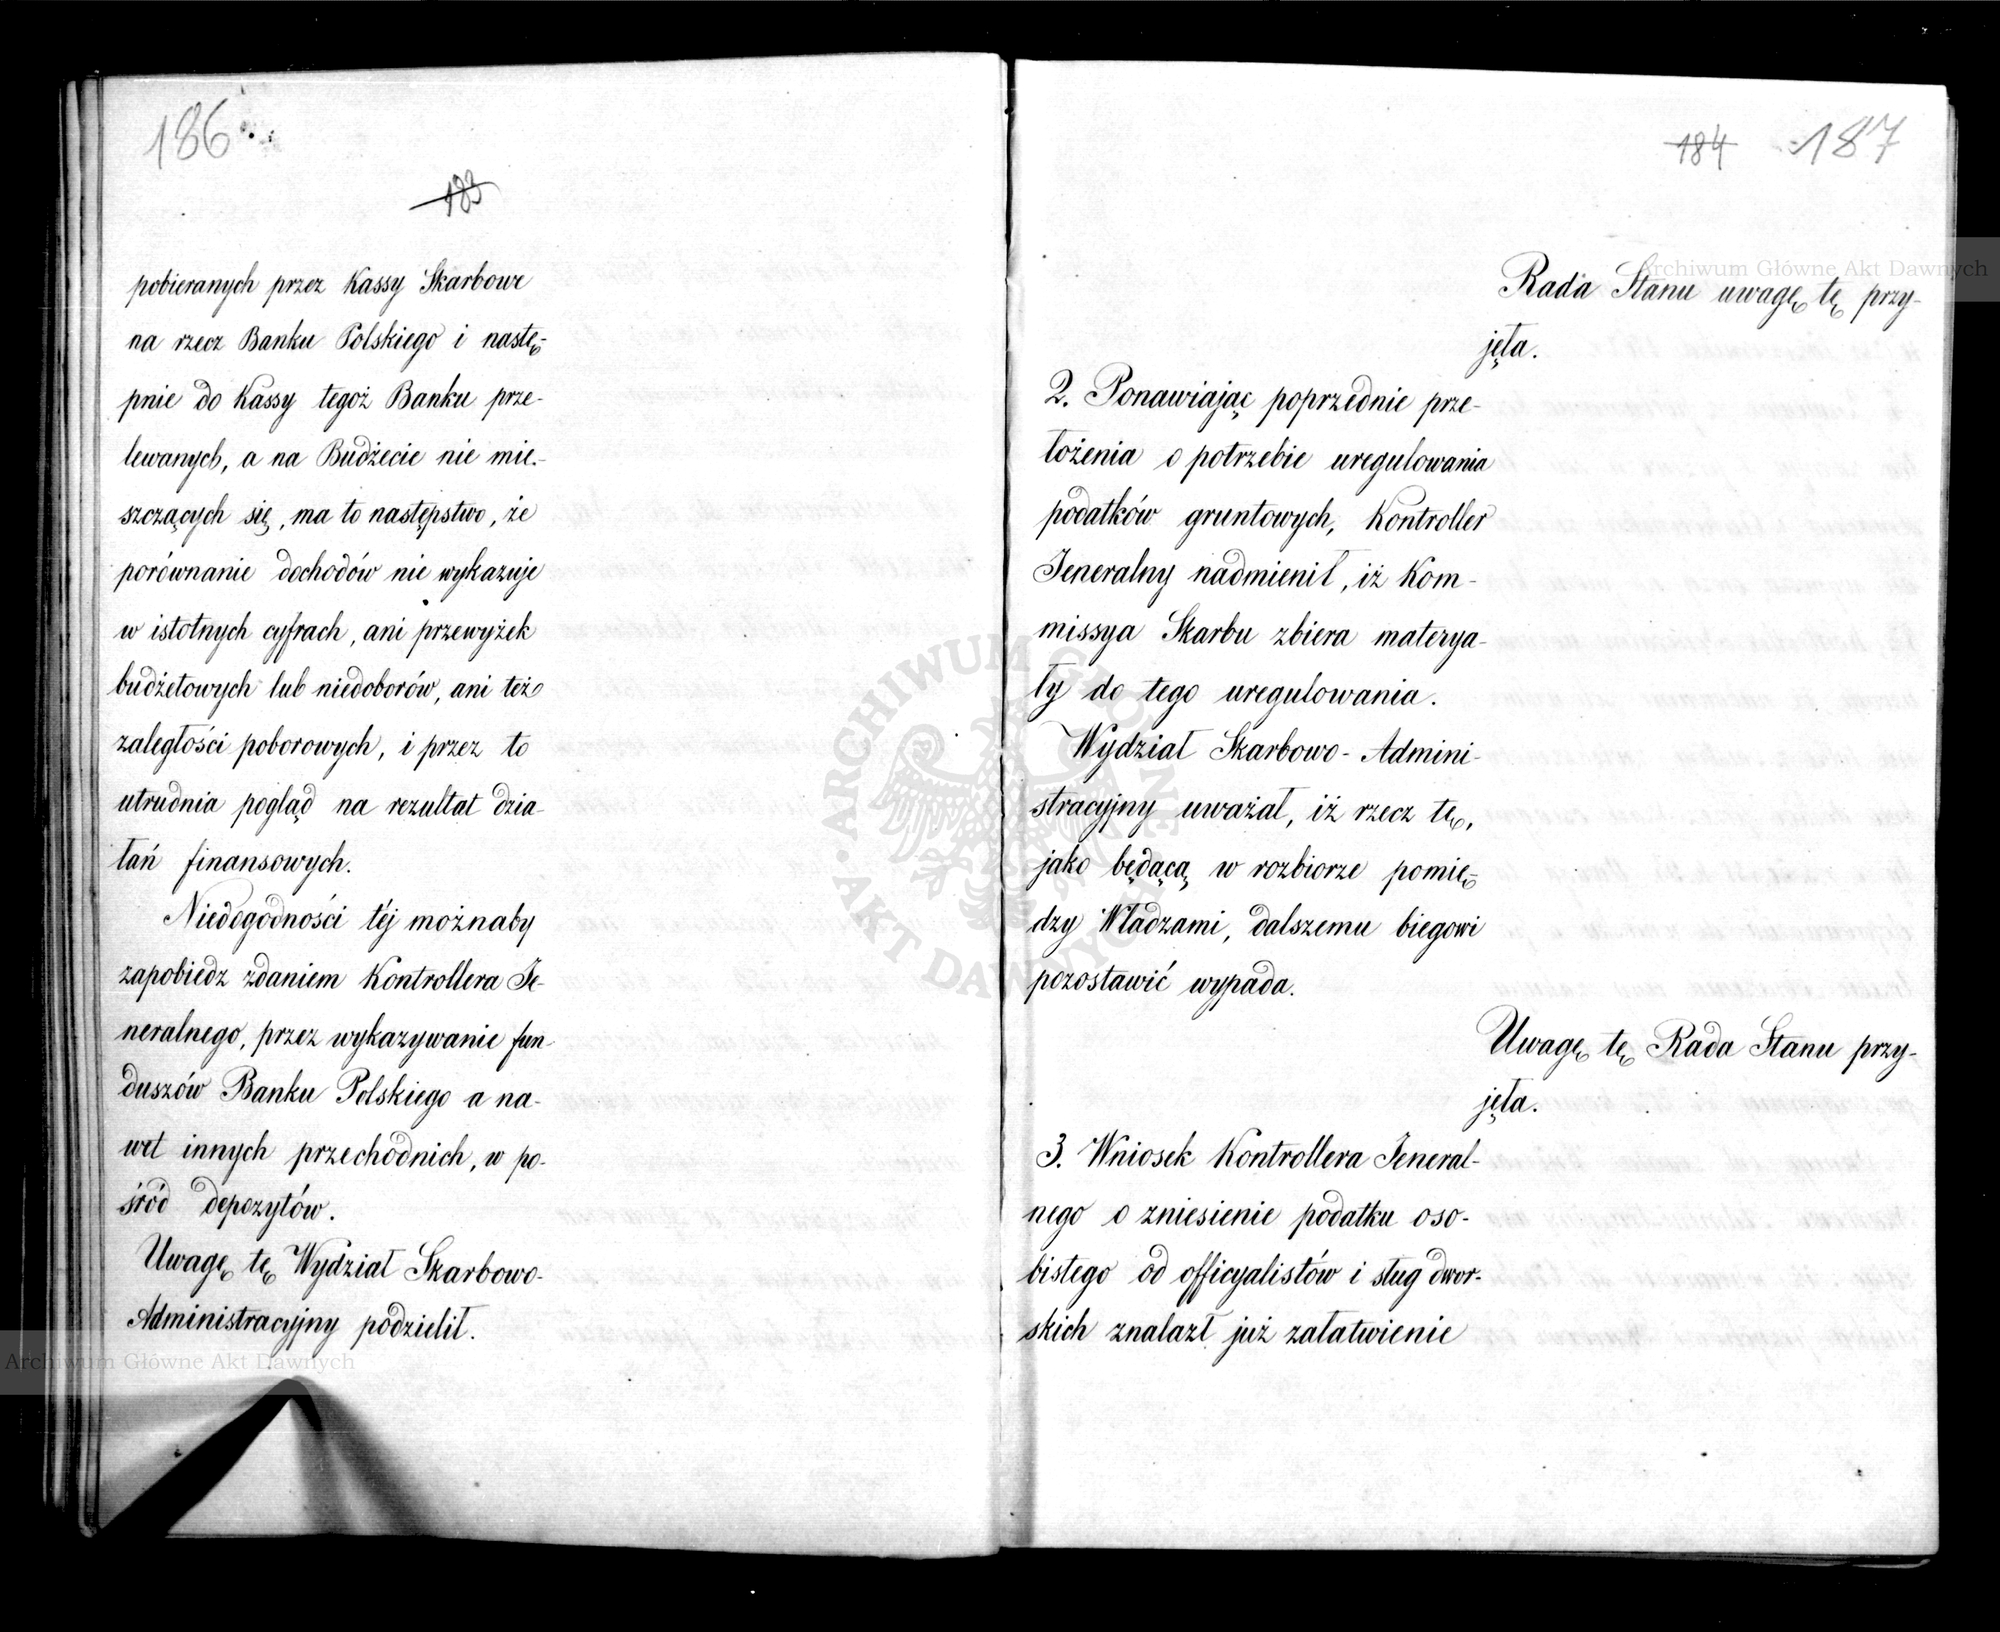 186
183
pobieranych przez Kassy Skarbowe
na rzecz Banku Polskiego i nastę-
pnie do Kassy tegoż Banku prze-
lewanych, a na Budżecie nie mie-
szczących się, ma to następstwo, że
porównanie dochodów nie wykazuje
w istotnych cyfrach, ani przewyżek
budżetowych lub niedoborów, ani też
zaległości poborowych, i przez to
utrudnia pogląd na rezultat dzia-
łań finansowych.
Niedogodności téj możnaby
zapobiedz zdaniem Kontrollera Je-
neralnego, przez wykazywanie fun-
duszów Banku Polskiego a na-
wet innych przechodnich, w po-
śród depozytów.
Uwagę tę Wydział Skarbowo-
Administracyjny podzielił.
184 187
Rada Stanu uwagę tę przy-
jęła.
2. Ponawiając poprzednie prze-
łożenia o potrzebie uregulowania
podatków gruntowych, Kontroller
Jeneralny nadmienił, iż Kom-
missya Skarbu zbiera materya-
ły do tego uregulowania.
Wydział Skarbowo-Admini-
stracyjny uważał, iż rzecz tę,
jako będącą w rozbiorze pomię-
dzy Władzami, dalszemu biegowi
pozostawić wypada.
Uwagę tę Rada Stanu przy-
jęła.
3. Wniosek Kontrollera Jeneral-
nego o zniesienie podatku oso-
bistego od officyalistów i sług dwor-
skich znalazł już załatwienie
Archiwum Główne Akt Dawnych
Archiwum Główne Akt Dawnych
ARCHIWUM GŁÓWNE AKT DAWNYCH